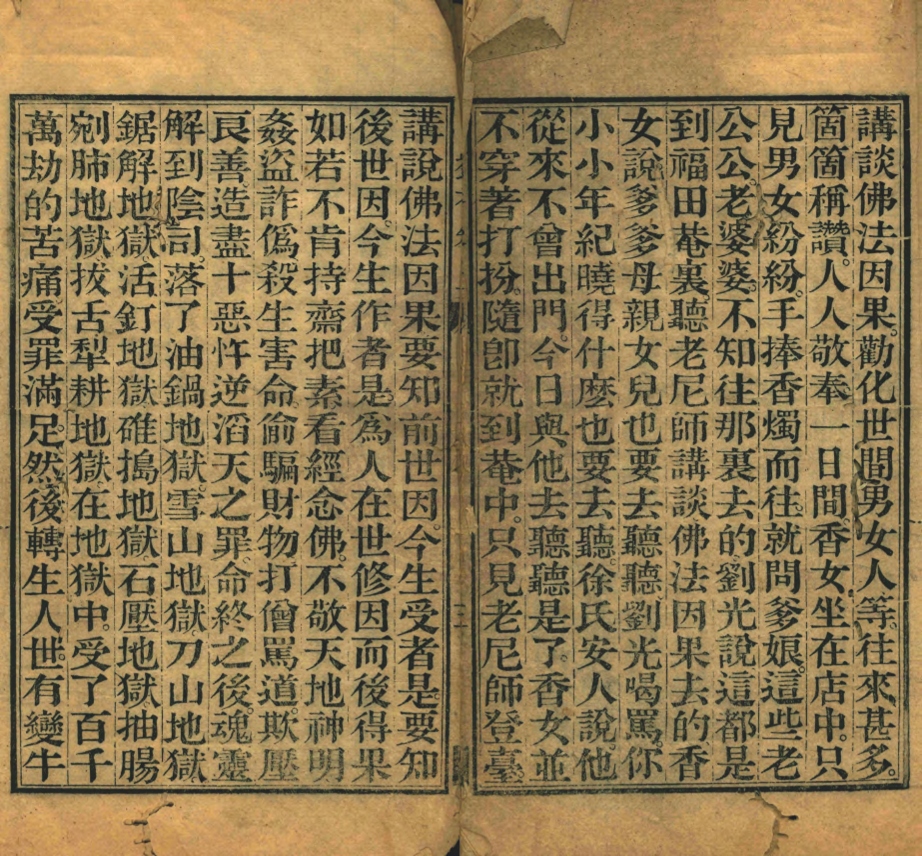 講談佛法因果。勸化世間男女人等。往來甚多。
箇箇稱讚。人人敬奉一日間。香女坐在店中。只
見男女紛紛。手捧香燭而往。就問爹娘。這些老
公公。老婆婆。不知往那裏去的。劉光說這都是
到福田菴裏。聽老尼師講談佛法因果去的。香
女說爹爹母親女兒也要去聽聽。劉光喝罵。你
小小年紀曉得什麽也要去聽。徐氏安人說。他
從來不曾出門。今日與他去聽聽是了。香女並
不穿著打扮。隨卽就到菴中。只見老尼師登臺。
講說佛法因果要知前世因。今生受者是。要知
後世因今生作者是。爲人在世修因而後得果
如若不肯持齋把素看經念佛。不敬天地神明
姦盜詐僞殺生害命偷騙財物打僧罵道。欺壓
良善。造盡十惡忤逆滔天之罪命終之後魂靈
解到陰司。落了油鍋地獄雪山地獄刀山地獄
鋸解地獄。活釘地獄碓搗地獄石壓地獄。抽腸
剜肺地獄拔舌犁耕地獄在地獄中。受了百千
萬劫的苦痛。受罪滿足。然後轉生人世。有變牛